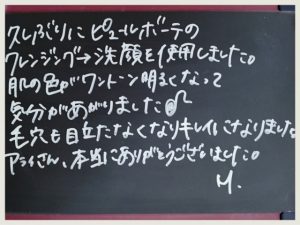 久しぶりにピュールボーテの
クレンジング→洗顔を使用しました。
肌の色がワントーン明るくなって
気分があがりました♪
毛穴も目立たなくなりキレイになりました。
アライさん、本当にありがとうございました。
M.